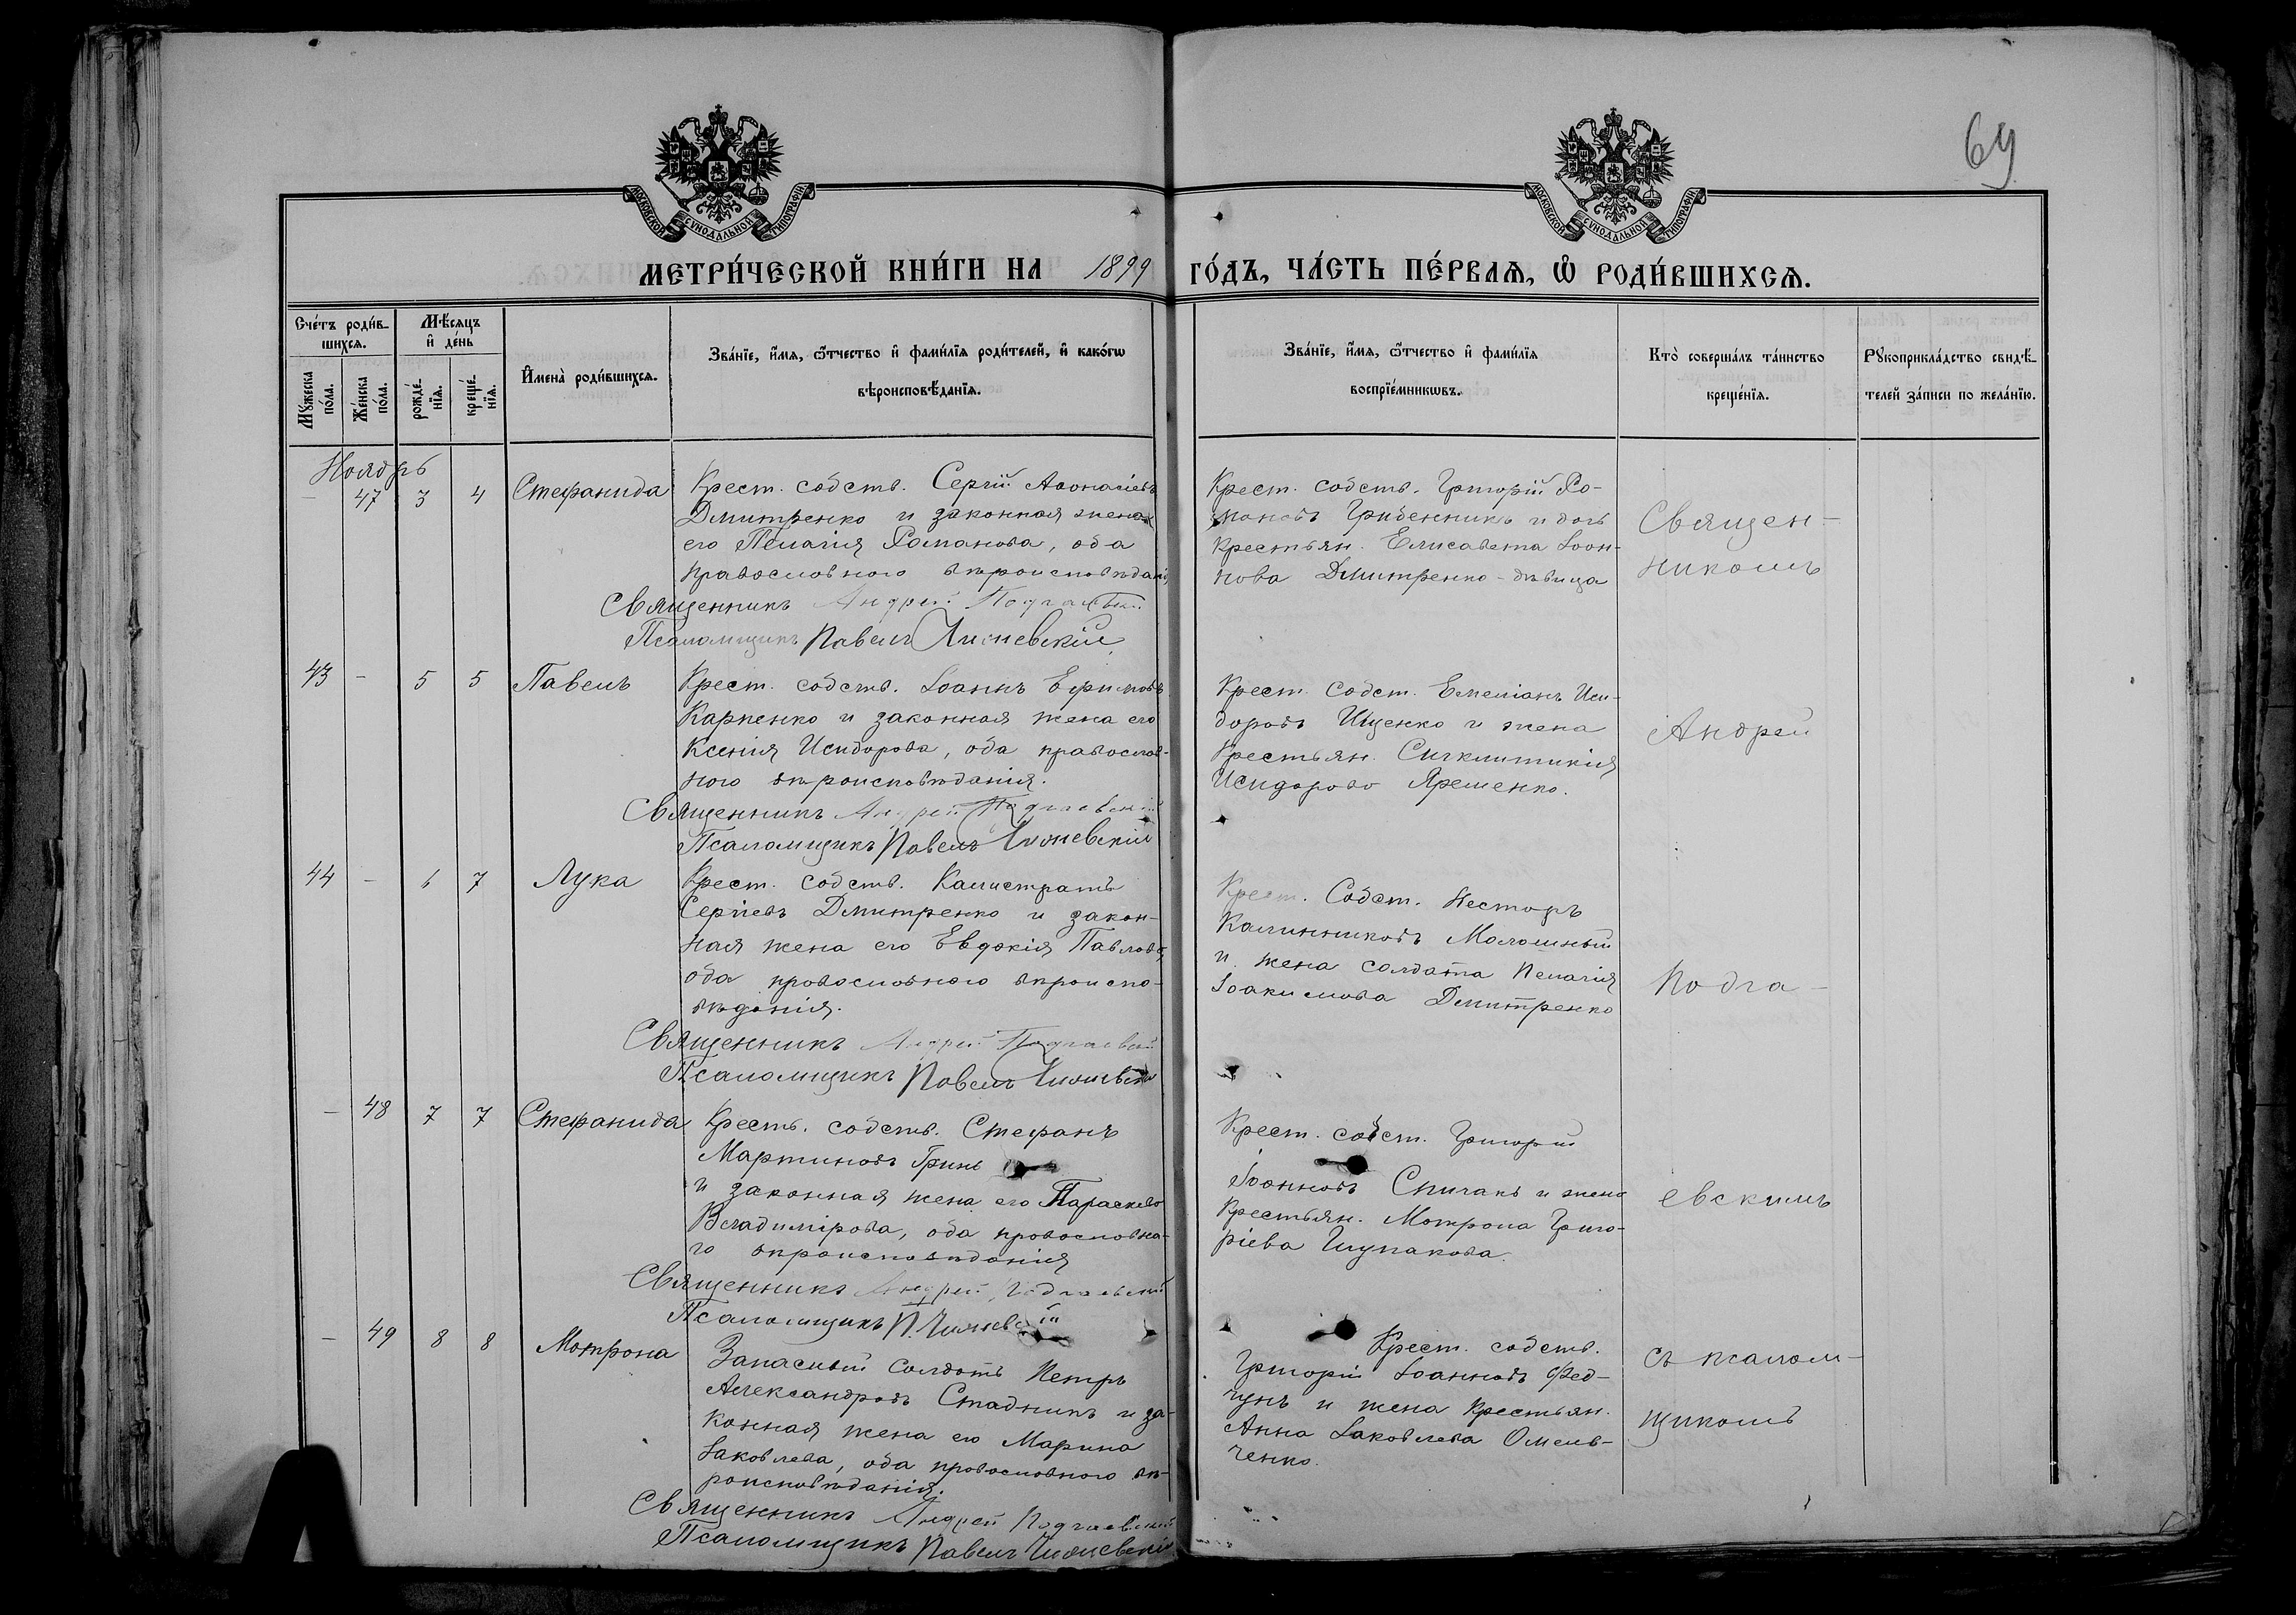 69
МОСКОВСКОЙ СУНОДАЛЬНОЙ ТИПОГРАФІИ
МОСКОВСКОЙ СУНОДАЛЬНОЙ ТИПОГРАФІИ
МЕТРИ́ЧЕСКОЙ КНИ́ГИ НА 1899 ГО́ДЪ, ЧА́СТЬ ПЕ́РВАѦ, Ѡ҆ РОДИ́ВШИХСѦ.
Сче́тъ роди́в-
шихсѧ.
Мѣ́сѧцъ
и҆ де́нь
Мꙋ́жеска
по́ла.
Же́нска
по́ла.
рожде́-
нїѧ.
креще́-
нїѧ.
И҆мена̀ роди́вшихсѧ.
Зва́нїе, и҆́мѧ, ѻ҆́тчество и҆ фами́лїѧ роди́телей, и҆ како́гѡ
вѣроисповѣ́данїѧ.
Зва́нїе, и҆́мѧ, ѻ҆́тчество и҆ фами́лїѧ
воспрїе́мникѡвъ.
Кто̀ соверша́лъ та́инство
креще́нїѧ.
Рꙋкоприкла́дство свидѣ́-
телей за́писи по жела́нїю.
Ноябрь
- 47 3 4 Стефанида
Крест. собств. Сергій Аѳонасіевъ
Дмитренко и законная жена
его Пелагія Романова, оба
православного вѣроисповѣданія
Священникъ Андрей Подгаевскій
Псаломщикъ Павелъ
Крест. собств. Григорій Ро-
мановъ Гребенникъ и дочь
крестьян. Елисавета Іоан-
нова Дмитренко - дѣвица
Священ-
никомъ
43 - 5 5 Павелъ
Крест. собств. Іоаннъ Ефимовъ
Карпенко и законная жена его
Ксенія Исидорова, оба православ-
ного вѣроисповѣданія.
Священникъ Андрей Подгаевскій
Псаломщикъ Павелъ
Крест. Собст. Емеліанъ Иси-
доровъ Ищенко и жена
крестьян. Сигклитикія
Исидорова Яременко.
Андрей
44 - 6 7 Лука
Крест. собств. Калистратъ
Сергіевъ Дмитренко и закон-
ная жена его Евдокія Павлова,
оба православного вѣроиспо-
вѣданія.
Священникъ Андрей Подгаевскій
Псаломщикъ Павелъ
Крест. Собст. Несторъ
Калинниковъ
и жена солдата Пелагія
Іоакимова Дмитренко
Подга-
- 48 7 7 Стефанида
Кресть. собств. Стефанъ
Мартиновъ Гринь
и законная жена его Параскева
Владимірова, оба православна-
го вѣроисповѣданія
Священникъ Андрей Подгаевскій
Псаломщикъ П.
Крест. собст. Григорій
Іоанновъ Спичакъ и жена
крестьян. Мотрона Григо-
ріева
евскимъ
- 49 8 8 Мотрона
Запасный солдатъ Петръ
Александровъ Стадникъ и за-
конная жена его Марина
Іаковлева, оба православного вѣ-
роисповѣданія.
Священникъ Андрей Подгаевскій
Псаломщикъ Павелъ
Крест. собств.
Григорій Іоанновъ Фед-
чунъ и жена крестьян.
Анна Іаковлева Омель-
ченко.
съ псалом-
щикомъ